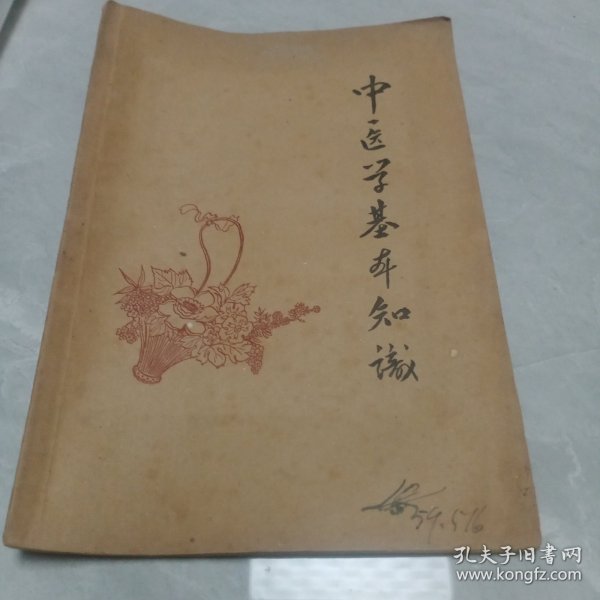 中医学基本知識
59.5.16
孔夫子旧书网
www.kongfz.com